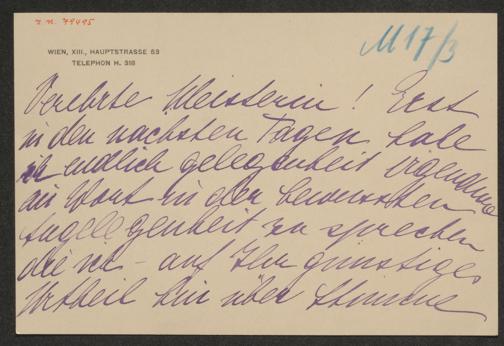 z. n. 79495
WIEN, XIII., HAUPTSTRASSE 53
TELEPHON H. 318
M 17/3
Verehrte Meisterin! Erst
in den nächsten Tagen habe
ich endlich gelegenheit irgendwo
ein Wort in der bewussten
Angelegenheit zu sprechen
die ich – auf Ihr günstiges
Urtheil hin über Stimme